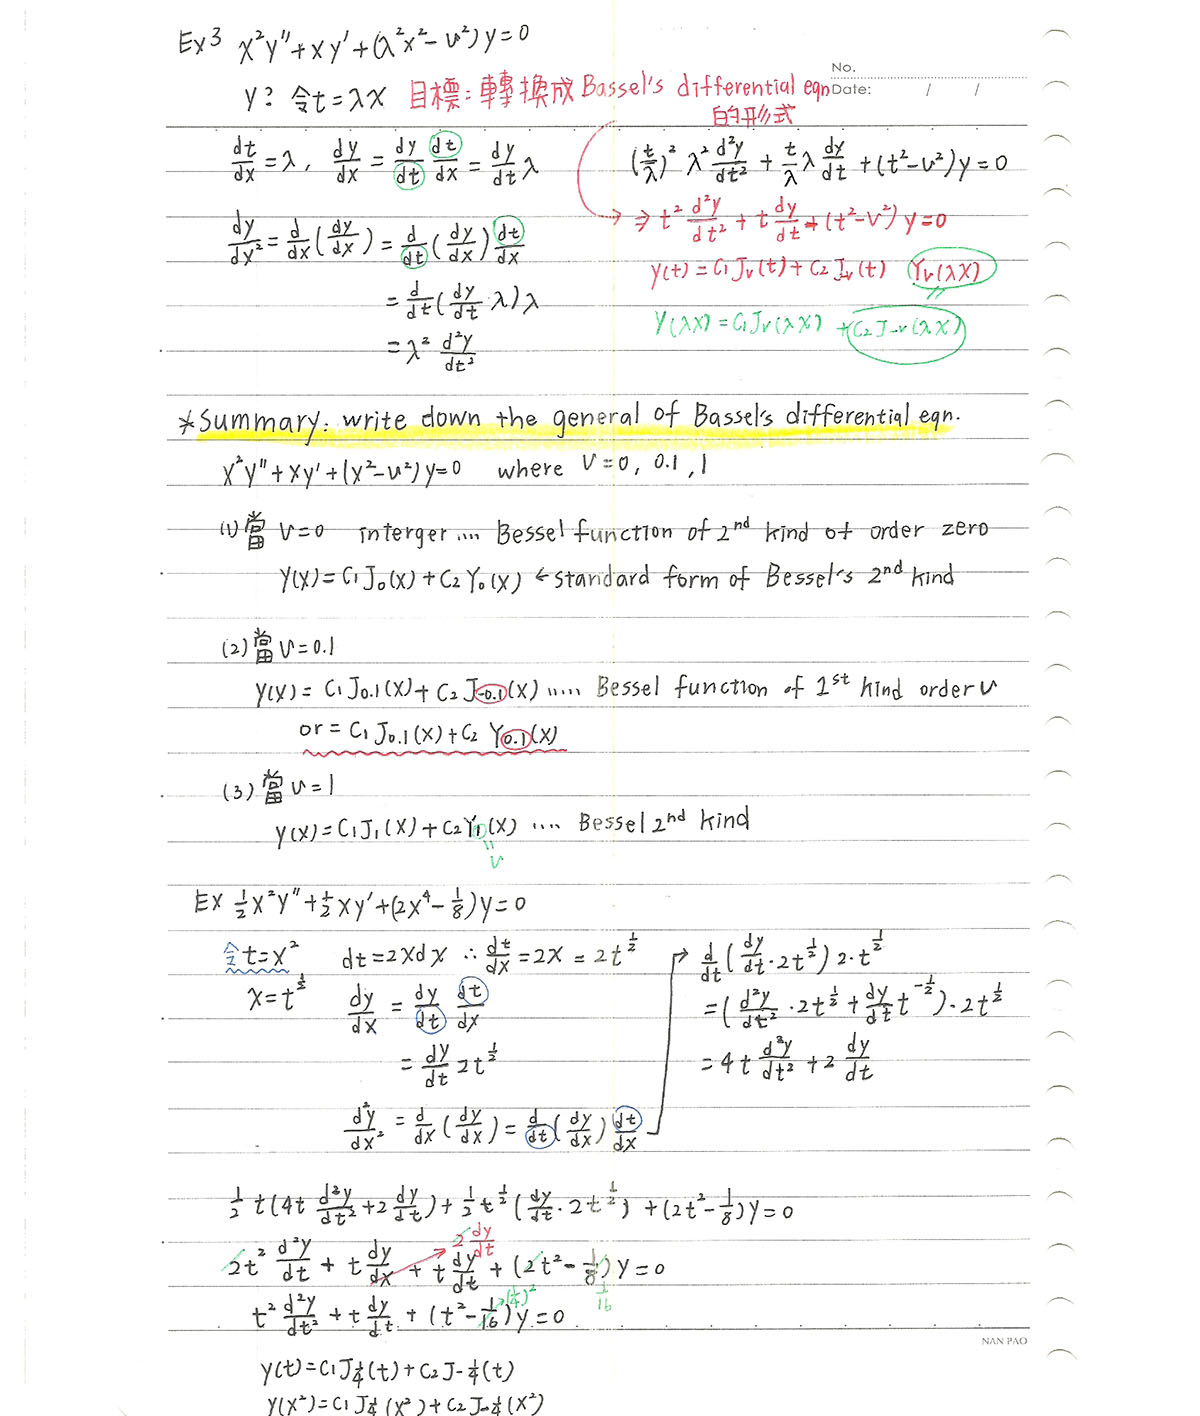 Ex3 x²y''+xy'+(λ²x²-ν²)y=0
No.
y? 令t=λx 目標:轉換成Bassel's differential eqn
Date: / /
的形式
dt/dx=λ, dy/dx = dy/dt dt/dx = dy/dt λ
(t/λ)² λ² d²y/dt² + t/λ λ dy/dt +(t²-ν²)y=0
dy/dx² = d/dx(dy/dx) = d/dt(dy/dx) dt/dx
⇒ t² d²y/dt² + t dy/dt + (t²-ν²)y=0
= d/dt(dy/dt·λ)λ
y(t)=C₁Jν(t)+C₂J₋ν(t) Yν(λx)
= λ² d²y/dt²
y(λx)=C₁Jν(λx) +C₂J₋ν(λx)
*Summary: write down the general of Bassel's differential eqn.
x²y''+xy'+(x²-ν²)y=0 where ν=0, 0.1, 1
(1)當 ν=0 interger.... Bessel function of 2nd kind of order zero
y(x)=C₁J₀(x)+C₂Y₀(x) ← standard form of Bessel's 2nd kind
(2)當ν=0.1
y(x)= C₁J0.1(x)+C₂J-0.1(x) ..... Bessel function of 1st kind order ν
or = C₁J0.1(x)+C₂ Y0.1(x)
(3)當ν=1
y(x)=C₁J₁(x)+C₂Y₁(x) .... Bessel 2nd kind
=
ν
Ex ½x²y''+½xy'+(2x⁴-⅛)y=0
令t=x² dt=2xdx ∴ dt/dx=2x=2t^½
x=t^½ dy/dx = dy/dt dt/dx
= dy/dt 2t^½
d²y/dx² = d/dx(dy/dx) = d/dt(dy/dx) dt/dx
→ d/dt(dy/dt·2t^½)2·t^½
=(d²y/dt²·2t^½+dy/dt t^-½)·2t^½
=4t d²y/dt² +2 dy/dt
½t(4t d²y/dt²+2 dy/dt)+½t^½(dy/dt·2t^½)+(2t²-⅛)y=0
2 dy/dt
2t² d²y/dt + t dy/dx + t dy/dt + (2t²-⅛)y=0
(¼)² 1/16
t² d²y/dt² + t dy/dt + (t²-1/16)y=0
NAN PAO
y(t)=C₁J¼(t)+C₂J-¼(t)
y(x²)=C₁J¼(x²)+C₂J-¼(x²)